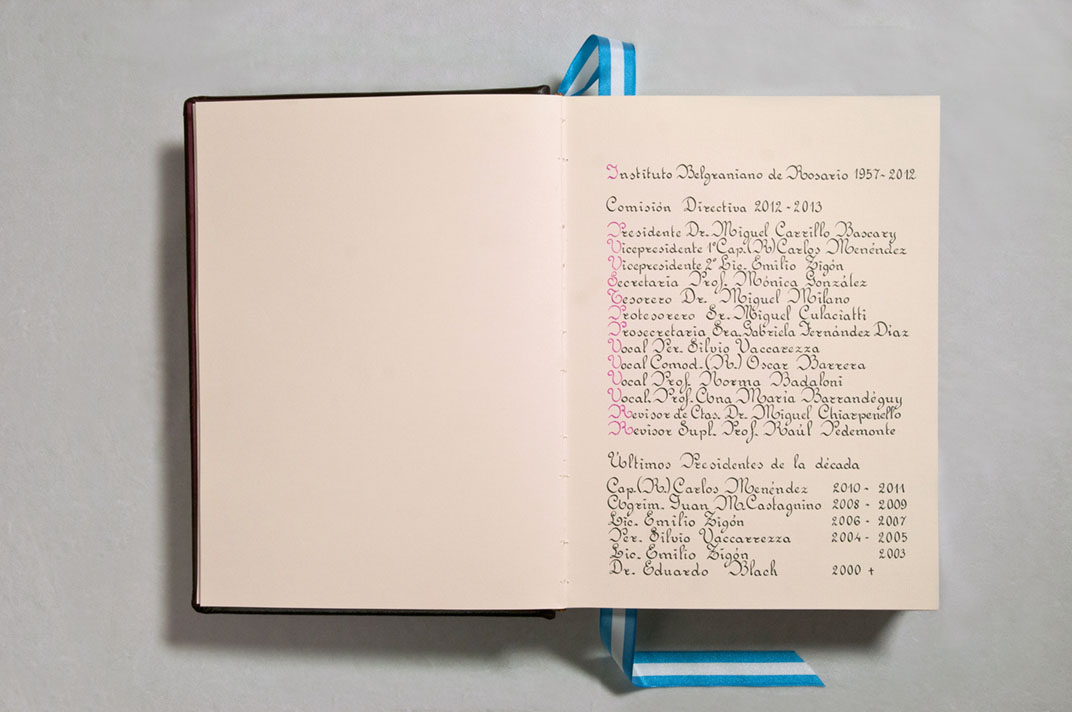 Instituto Belgraniano de Rosario 1957-2012
Comisión Directiva 2012-2013
Presidente Dr. Miguel Carrillo Bascary
Vicepresidente 1º Cap.(R) Carlos Menéndez
Vicepresidente 2º Lic. Emilio Zigón
Secretaria Prof. Mónica González
Tesorero Dr. Miguel Milano
Protesorero Sr. Miguel Culaciatti
Prosecretaria Sra. Gabriela Fernández Díaz
Vocal Per. Silvio Vaccarezza
Vocal Comod.(R.) Oscar Barrera
Vocal Prof. Norma Badaloni
Vocal. Prof. Ana María Barrandéguy
Revisor de Ctas. Dr. Miguel Chiarpenello
Revisor Supl. Prof. Raúl Pedemonte
Últimos Presidentes de la década
Cap.(R.) Carlos Menéndez 2010 - 2011
Agrim. Juan M. Castagnino 2008 - 2009
Lic. Emilio Zigón 2006 - 2007
Per. Silvio Vaccarrezza 2004 - 2005
Lic. Emilio Zigón 2003
Dr. Eduardo Blach 2000 †